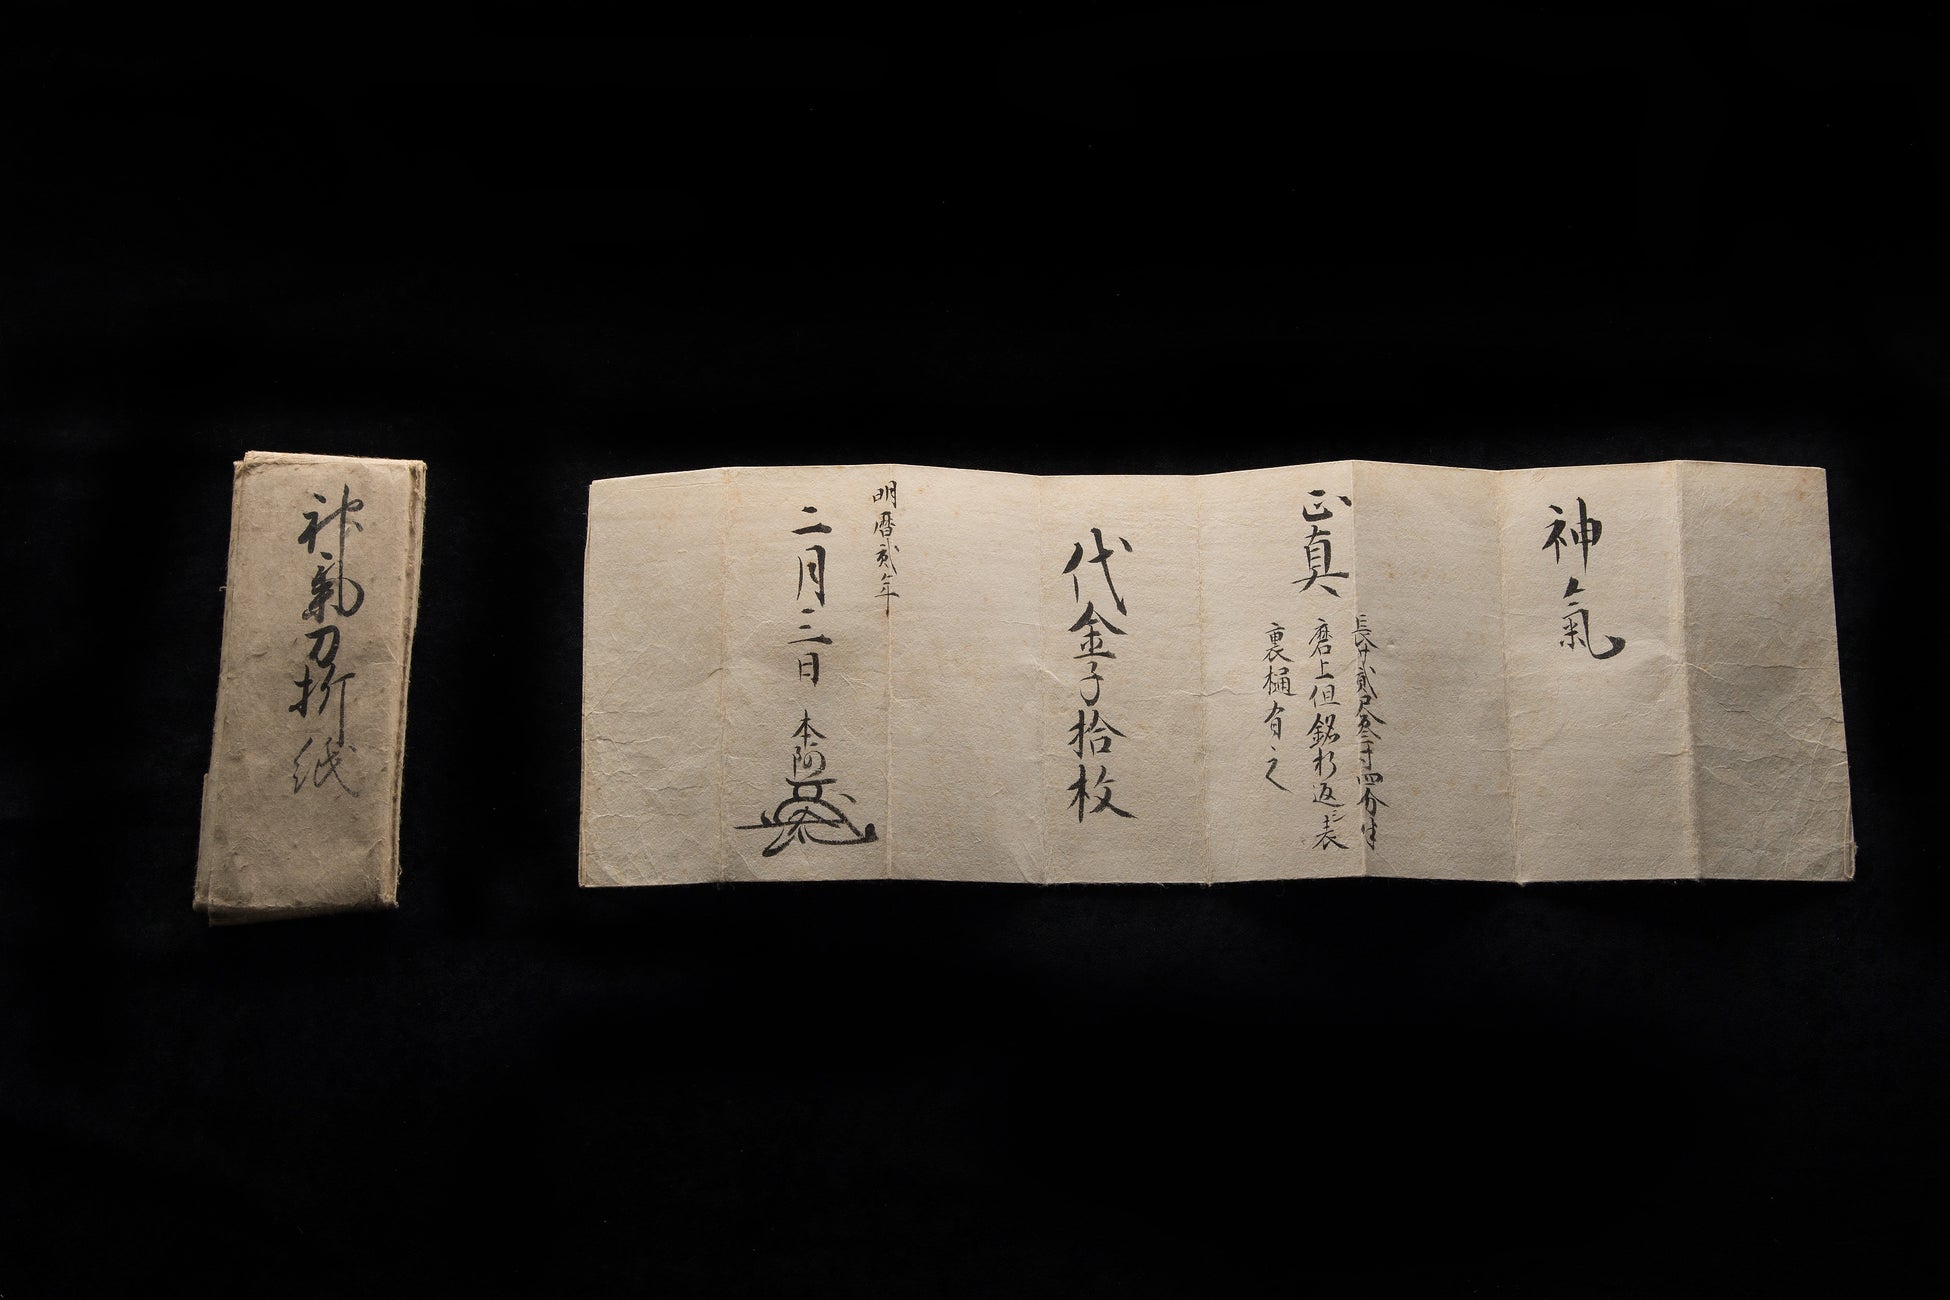 神氣刀折紙
神氣
正真
長サ貳尺参寸四分半
磨上但銘折返シ表
裏樋有之
代金子拾枚
明暦貳年
二月三日 本阿